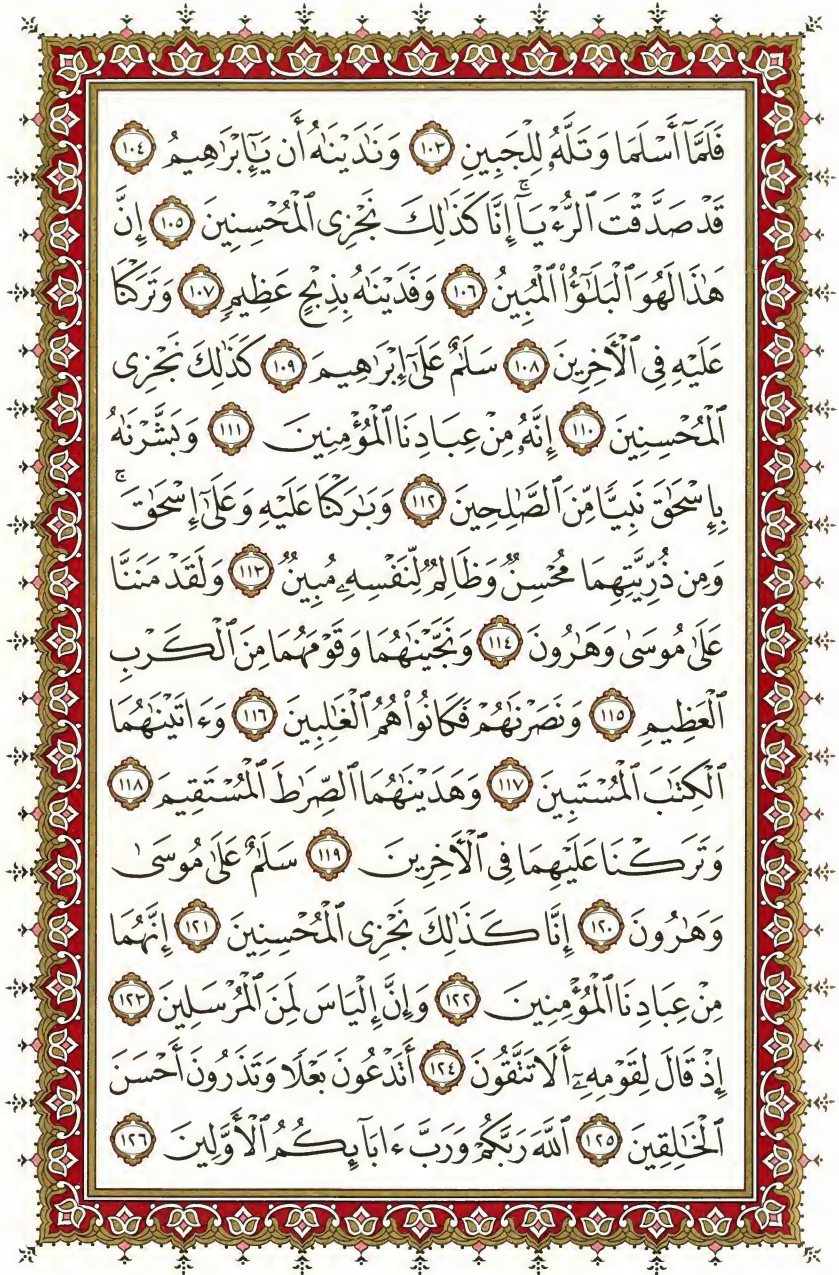 فَلَمَّآ أَسْلَمَا وَتَلَّهُۥ لِلْجَبِينِ ١٠٣ وَنَٰدَيْنَٰهُ أَن يَٰٓإِبْرَٰهِيمُ ١٠٤
قَدْ صَدَّقْتَ ٱلرُّءْيَآۚ إِنَّا كَذَٰلِكَ نَجْزِى ٱلْمُحْسِنِينَ ١٠٥ إِنَّ
هَٰذَا لَهُوَ ٱلْبَلَٰٓؤُا۟ ٱلْمُبِينُ ١٠٦ وَفَدَيْنَٰهُ بِذِبْحٍ عَظِيمٍ ١٠٧ وَتَرَكْنَا
عَلَيْهِ فِى ٱلْأَخِرِينَ ١٠٨ سَلَٰمٌ عَلَىٰٓ إِبْرَٰهِيمَ ١٠٩ كَذَٰلِكَ نَجْزِى
ٱلْمُحْسِنِينَ ١١٠ إِنَّهُۥ مِنْ عِبَادِنَا ٱلْمُؤْمِنِينَ ١١١ وَبَشَّرْنَٰهُ
بِإِسْحَٰقَ نَبِيًّا مِّنَ ٱلصَّٰلِحِينَ ١١٢ وَبَٰرَكْنَا عَلَيْهِ وَعَلَىٰٓ إِسْحَٰقَۚ
وَمِن ذُرِّيَّتِهِمَا مُحْسِنٌ وَظَالِمٌ لِّنَفْسِهِۦ مُبِينٌ ١١٣ وَلَقَدْ مَنَنَّا
عَلَىٰ مُوسَىٰ وَهَٰرُونَ ١١٤ وَنَجَّيْنَٰهُمَا وَقَوْمَهُمَا مِنَ ٱلْكَرْبِ
ٱلْعَظِيمِ ١١٥ وَنَصَرْنَٰهُمْ فَكَانُوا۟ هُمُ ٱلْغَٰلِبِينَ ١١٦ وَءَاتَيْنَٰهُمَا
ٱلْكِتَٰبَ ٱلْمُسْتَبِينَ ١١٧ وَهَدَيْنَٰهُمَا ٱلصِّرَٰطَ ٱلْمُسْتَقِيمَ ١١٨
وَتَرَكْنَا عَلَيْهِمَا فِى ٱلْأَخِرِينَ ١١٩ سَلَٰمٌ عَلَىٰ مُوسَىٰ
وَهَٰرُونَ ١٢٠ إِنَّا كَذَٰلِكَ نَجْزِى ٱلْمُحْسِنِينَ ١٢١ إِنَّهُمَا
مِنْ عِبَادِنَا ٱلْمُؤْمِنِينَ ١٢٢ وَإِنَّ إِلْيَاسَ لَمِنَ ٱلْمُرْسَلِينَ ١٢٣
إِذْ قَالَ لِقَوْمِهِۦٓ أَلَا تَتَّقُونَ ١٢٤ أَتَدْعُونَ بَعْلًا وَتَذَرُونَ أَحْسَنَ
ٱلْخَٰلِقِينَ ١٢٥ ٱللَّهَ رَبَّكُمْ وَرَبَّ ءَابَآئِكُمُ ٱلْأَوَّلِينَ ١٢٦